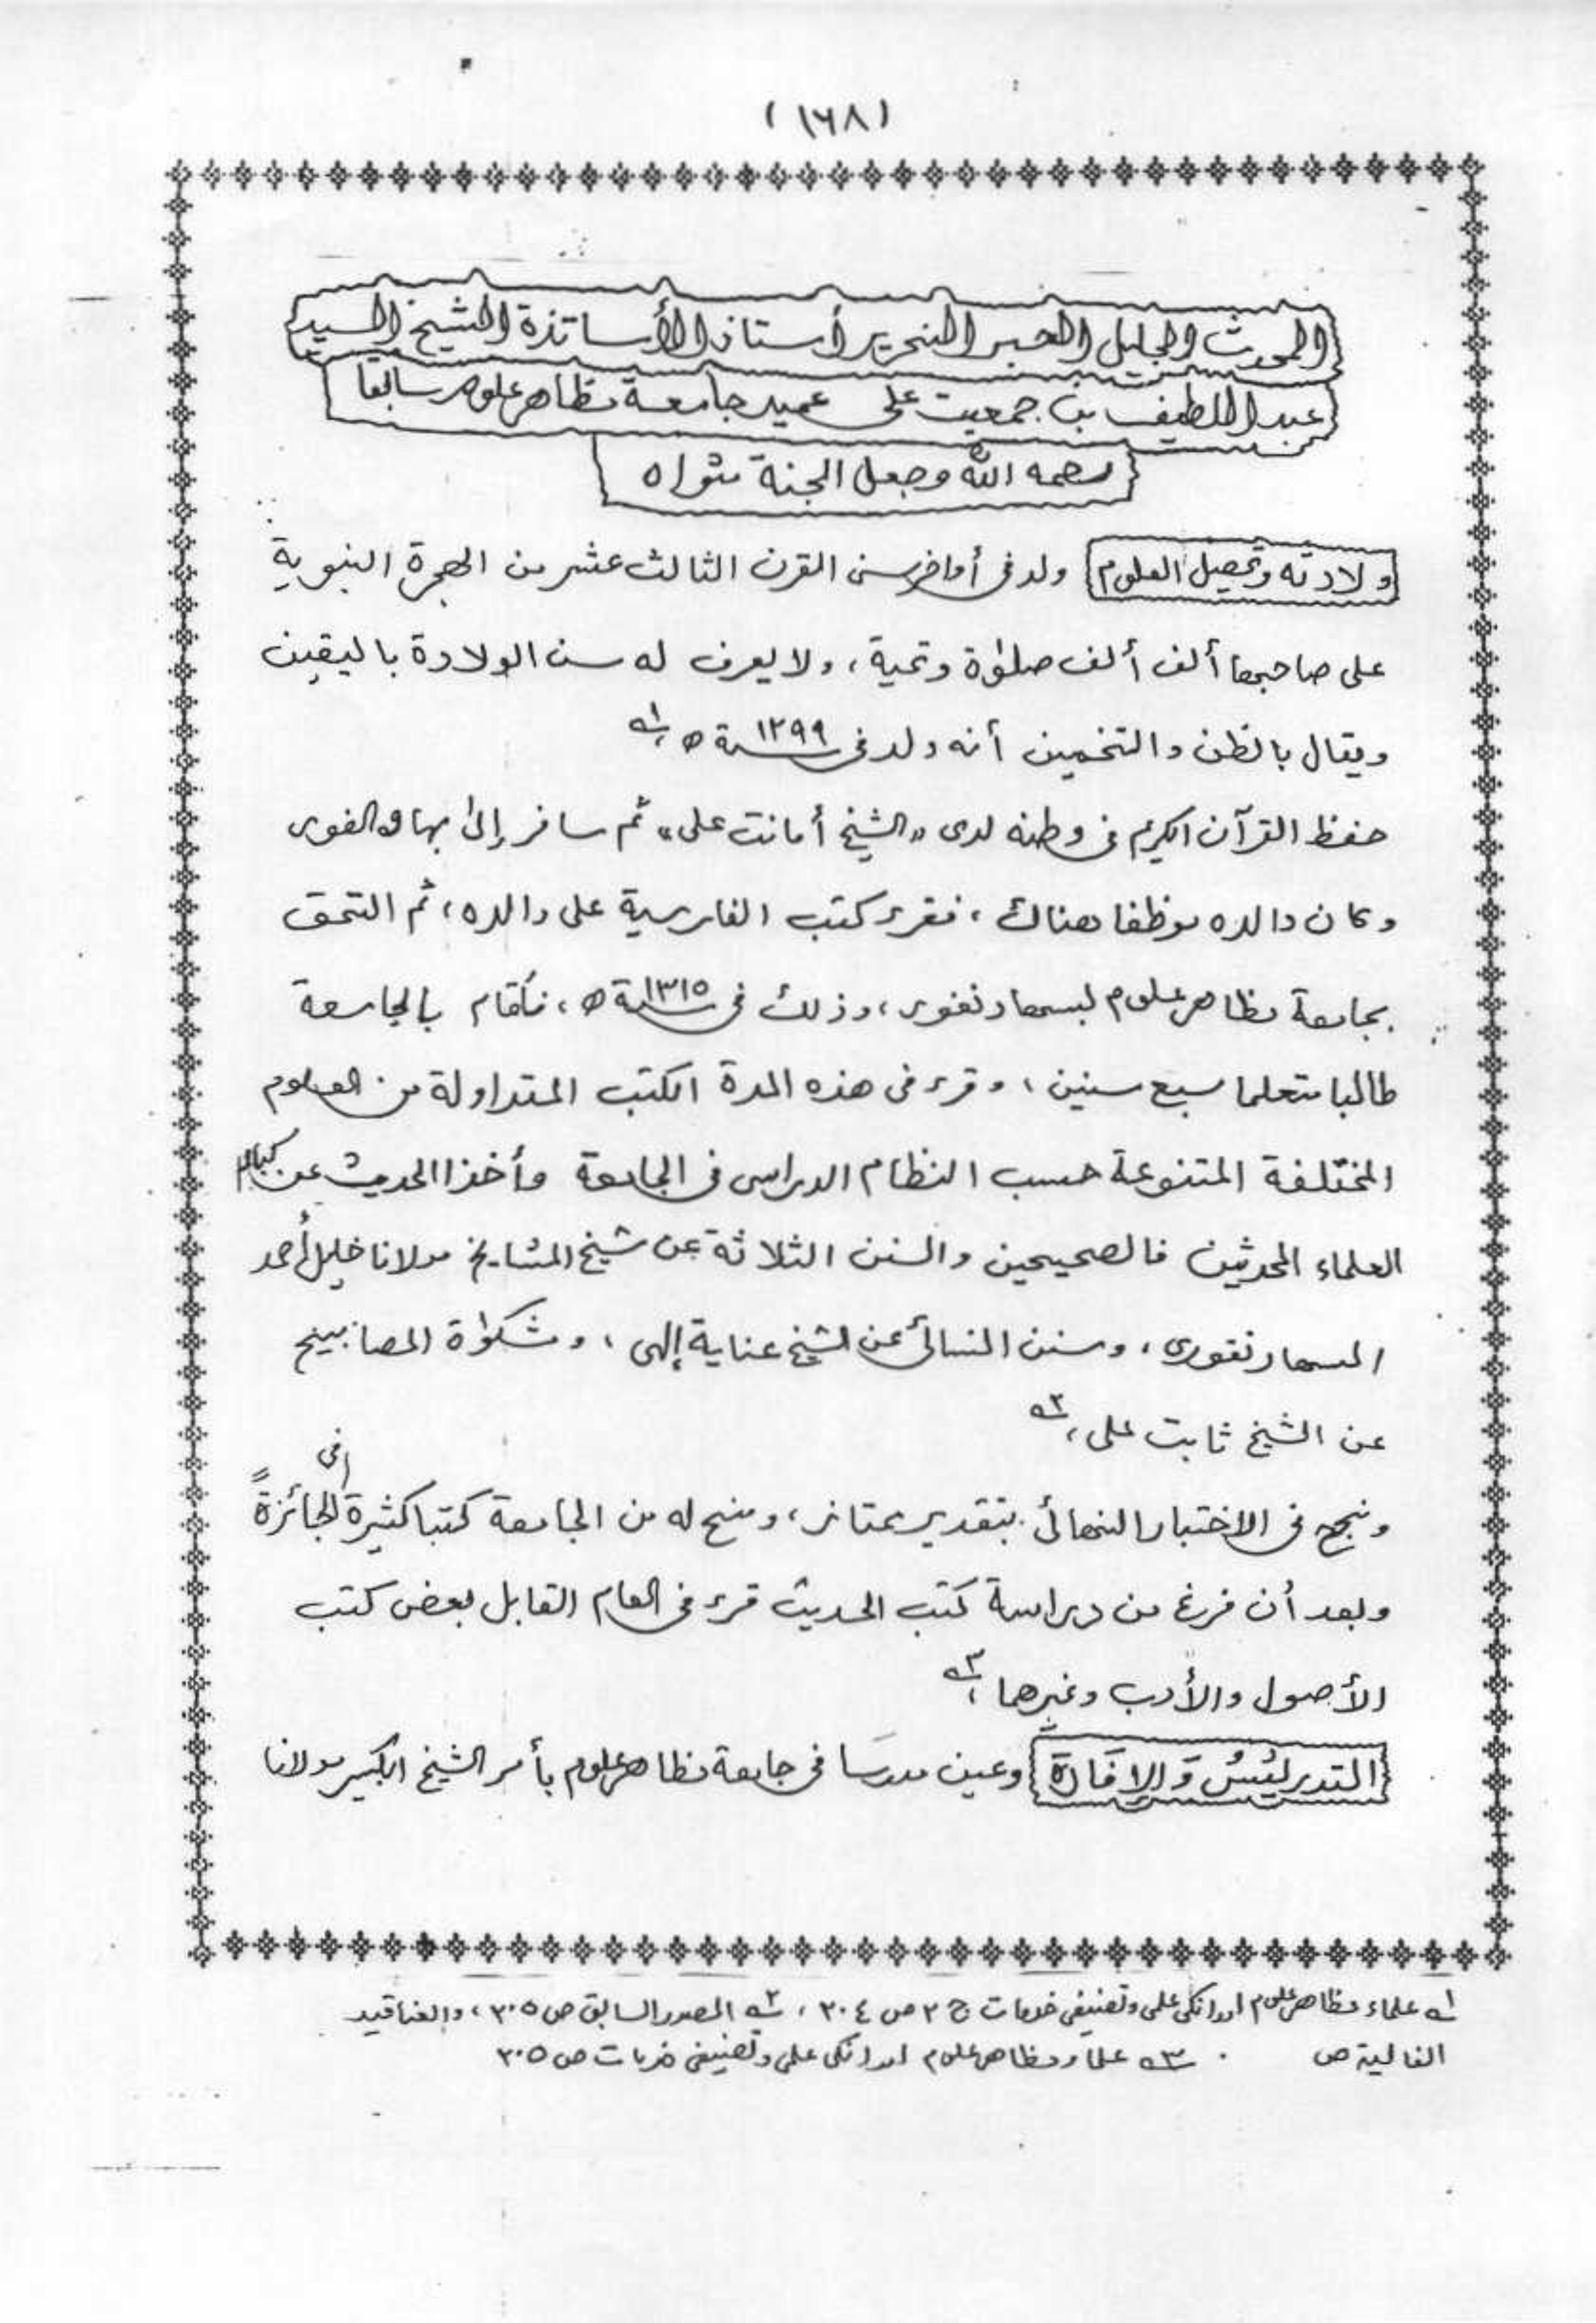 (١٦٨)
المحدث الجليل الحبر النحرير أستاذ الأساتذة الشيخ السيد
عبد اللطيف بن جمعيت على عميد جامعة مظاهر علوم سابقا
رحمه الله وجعل الجنة مثواه
ولادته وتحصيل العلوم ولد فى أواخر سنى القرن الثالث عشر من الهجرة النبوية
على صاحبها ألف ألف صلوٰة وتحية، ولا يعرف له سن الولادة باليقين
ويقال بالظن والتخمين أنه ولد فى سنة ١٢٩٩ ه، ١ه
حفظ القرآن الكريم فى وطنه لدى "الشيخ أمانت على" ثم سافر إلىٰ بهاولفور
وكان والده موظفا هناك، فقرء كتب الفارسية على والده، ثم التحق
بجامعة مظاهر علوم بسهارنفور، وذلك فى سنة ١٣١٥ ه، فأقام بالجامعة
طالبا متعلما سبع سنين، وقرء فى هذه المدة الكتب المتداولة من العلوم
المختلفة المتنوعة حسب النظام الدراسى فى الجامعة وأخذ الحديث عن كبار
العلماء المحدثين فالصحيحين والسنن الثلاثة عن شيخ المشايخ مولانا خليل أحمد
السهارنفورى، وسنن النسائى عن الشيخ عناية إلهى، ومشكوٰة المصابيح
عن الشيخ ثابت على، ٢ه
ونجح فى الاختبار النهائى بتقدير ممتاز، ومنح له من الجامعة كتبا كثيرة فى الجائزةً
وبعد أن فرغ من دراسة كتب الحديث قرء فى العام القابل بعض كتب
الأصول والأدب وغيرهما، ٣ه
التدريسُ وَالإفَادة وعين مدرسَا فى جامعة مظاهر علوم بأمر الشيخ الكبير مولانا
١ه علماء مظاهر علوم اور انكى علمى وتصنيفى خدمات ج ٢ ص ٣٠٤، ٢ه المصدر السابق ص ٣٠٥، والعناقيد
الغالية ص . ٣ه علماء مظاهر علوم اور انكى علمى وتصنيفى خدمات ص ٣٠٥